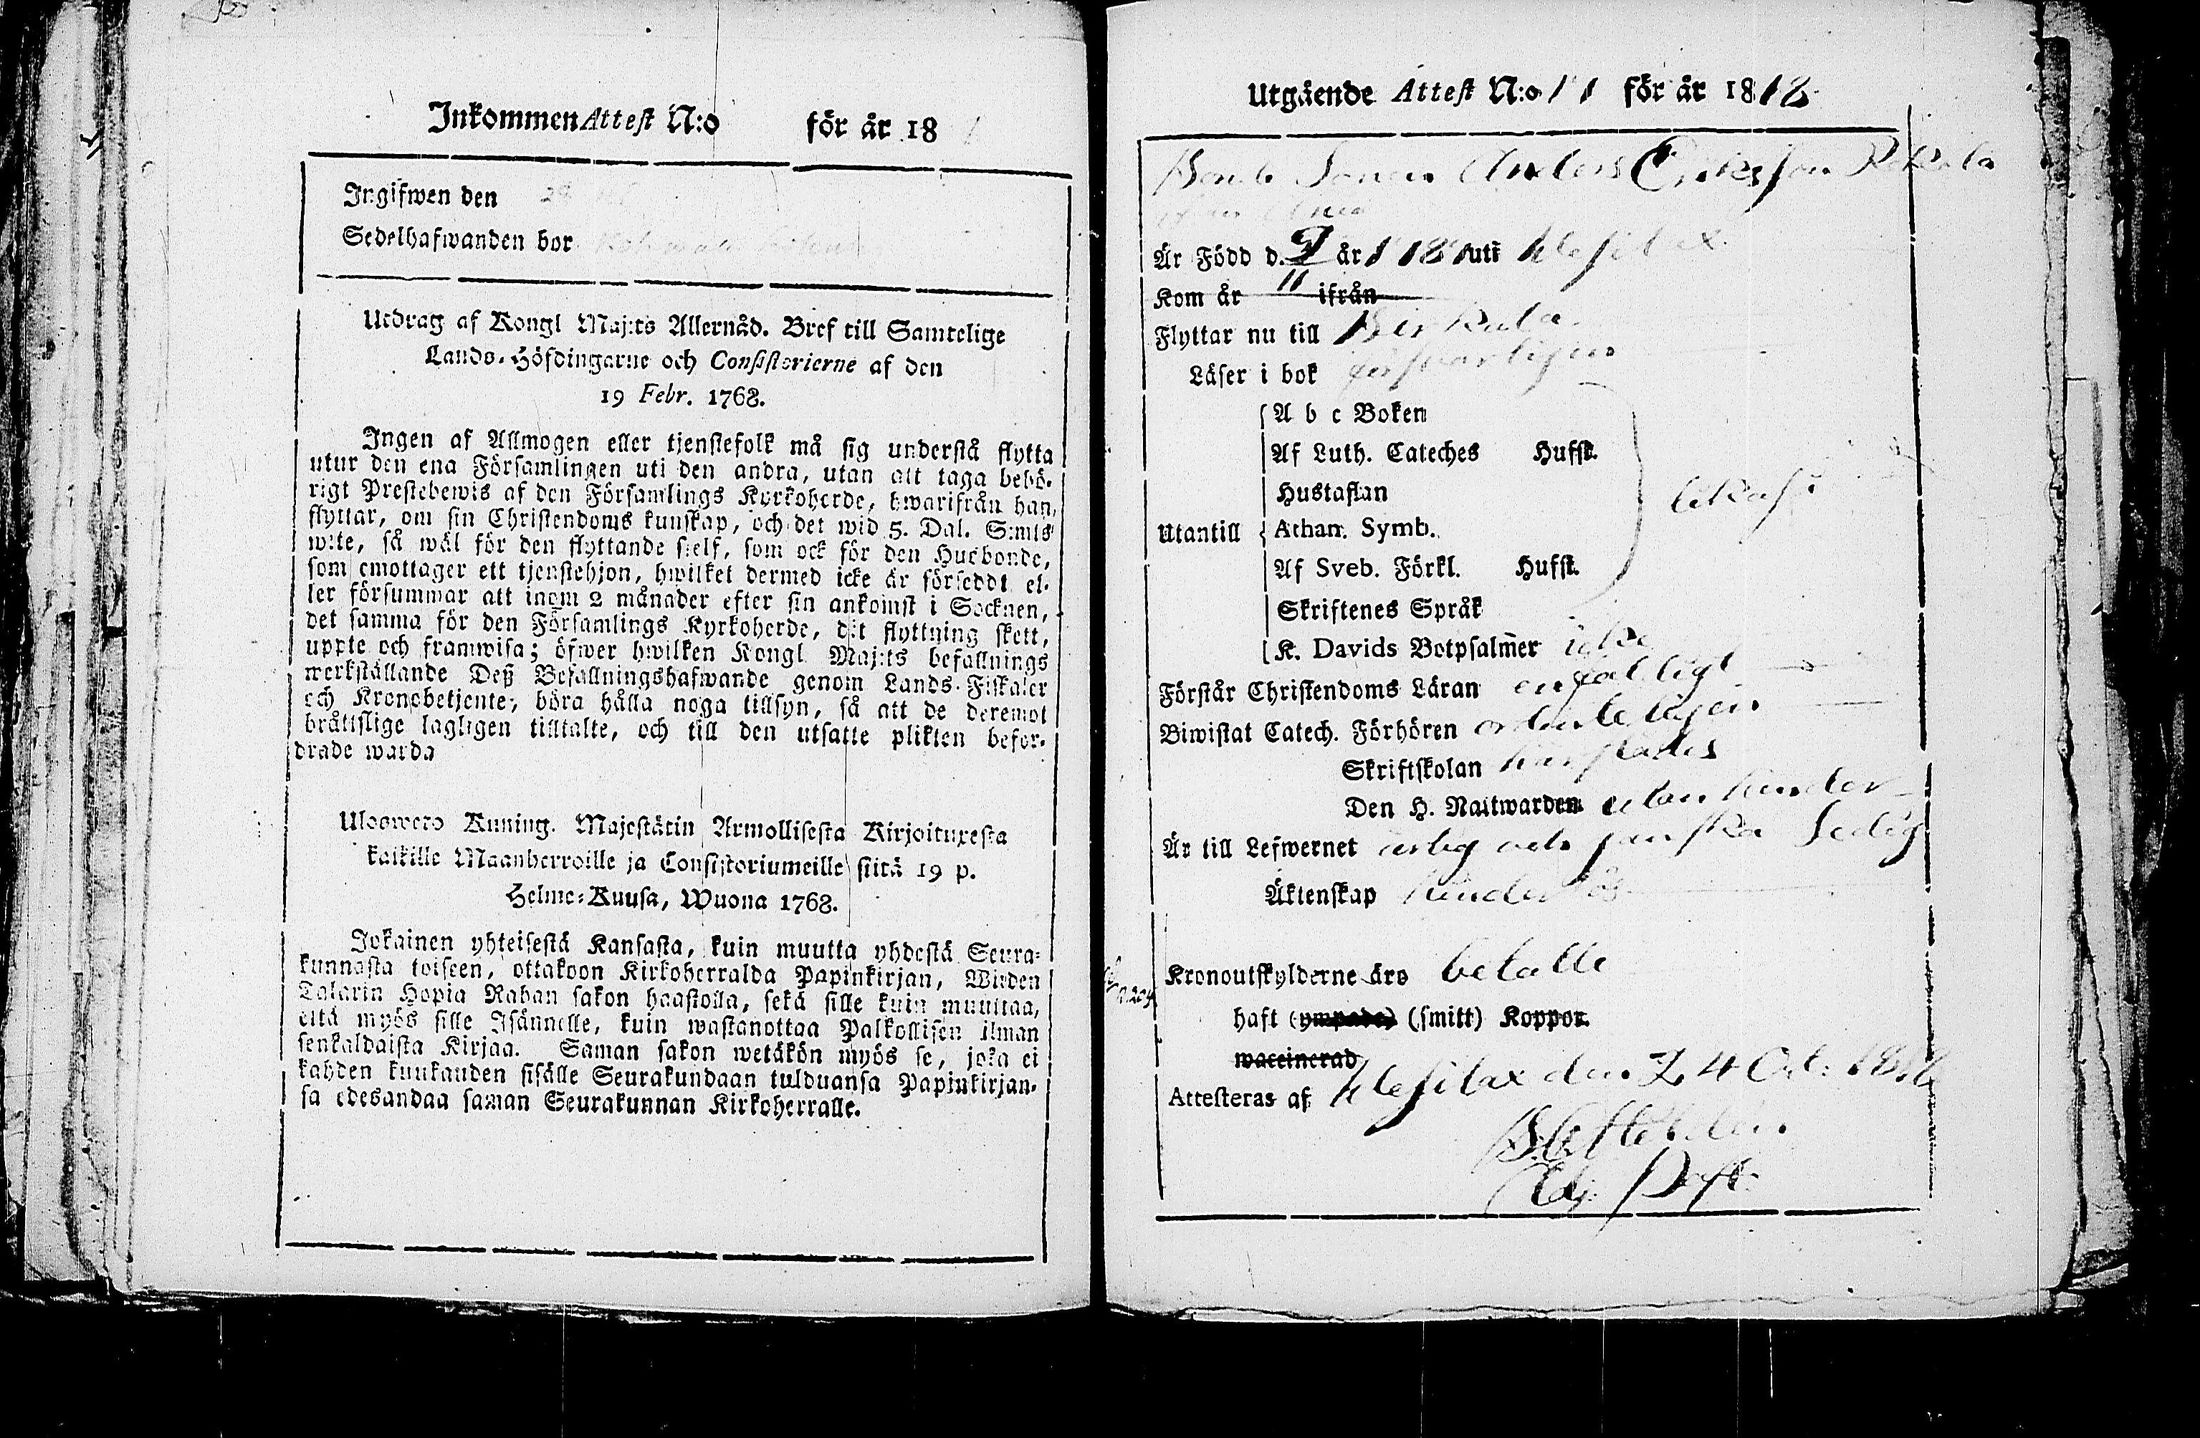 Inkommen Attest N:o för år 18
Ingifwen den 28
Sedelhafwanden bor
Utdrag af Kongl Maj:ts Allernåd. Bref till Samtelige
Lands-Höfdingarne och Consistorierne af den
19 Febr. 1768.
Ingen af Allmogen eller tjenstefolk må sig understå flytta
utur den ena Församlingen uti den andra, utan att taga behö-
rigt Prestebewis af den Församlings Kyrkoherde, hwarifrån han
flyttar, om sin Christendoms kunskap, och det wid 5. Dal. S:mts
wite, så wäl för den flyttande sielf, som ock för den Husbonde,
som emottager ett tjenstehjon, hwilket dermed icke är försedd: el-
ler försummar att inom 2 månader efter sin ankomst i Socknen,
det samma för den Församlings Kyrkoherde, dit flyttning skett,
uppte och framwisa; öfwer hwilken Kongl Maj:ts befallnings
werkställande Deß Befallningshafwande genom Lands-Fiskaler
och Kronobetjente, böra hålla noga tillsyn, så att de deremot
bråttslige lagligen tilltalte, och till den utsatte plikten befor-
drade warda
Uloswero Kuning. Majestätin Armollisesta Kirjoituxesta
kaikille Maanherroille ja Consistoriumeille siitä 19 p.
Helme-Kuusa, Wuona 1768.
Jokainen yhteisestä Kansasta, kuin muutta yhdestä Seura-
kunnasta toiseen, ottakoon Kirkoherralda Papinkirjan, Wiiden
Talarin Hopia Rahan sakon haastolla, sekä sille kuin muuttaa,
että myös sille Isännelle, kuin wastanottaa Palkollisen ilman
senkaldaista Kirjaa. Saman sakon wetäkön myös se, joka ei
kahden kuukauden sisälle Seurakundaan tulduansa Papinkirjan-
sa edesandaa saman Seurakunnan Kirkoherralle.
Utgående Attest N:o 11 för år 1818
Bonde Sonen Anders Ericsson
Är Född d. år uti
Kom år ifrån
Flyttar nu till Birkala
Läser i bok försvarligen
A b c Boken
Af Luth. Cateches Hufst.
Hustaflan
Utantill Athan. Symb.
Af Sveb. Förkl. Hufst.
Skriftenes Språk
likaså
K. Davids Botpsalmer icke
Förstår Christendoms Läran enfaldigt
Biwistat Catech. Förhören ordenteligen
Skriftskolan
Den H. Nattwarden utan hinder
Är till Lefwernet ärlig och ganska Sedig
Äktenskap hinderlös
Kronoutskylderne äro betalte
haft (ympade) (smitt) Koppor.
waccinerad
Attesteras af Ulfsilax den 24 Oct: 1818